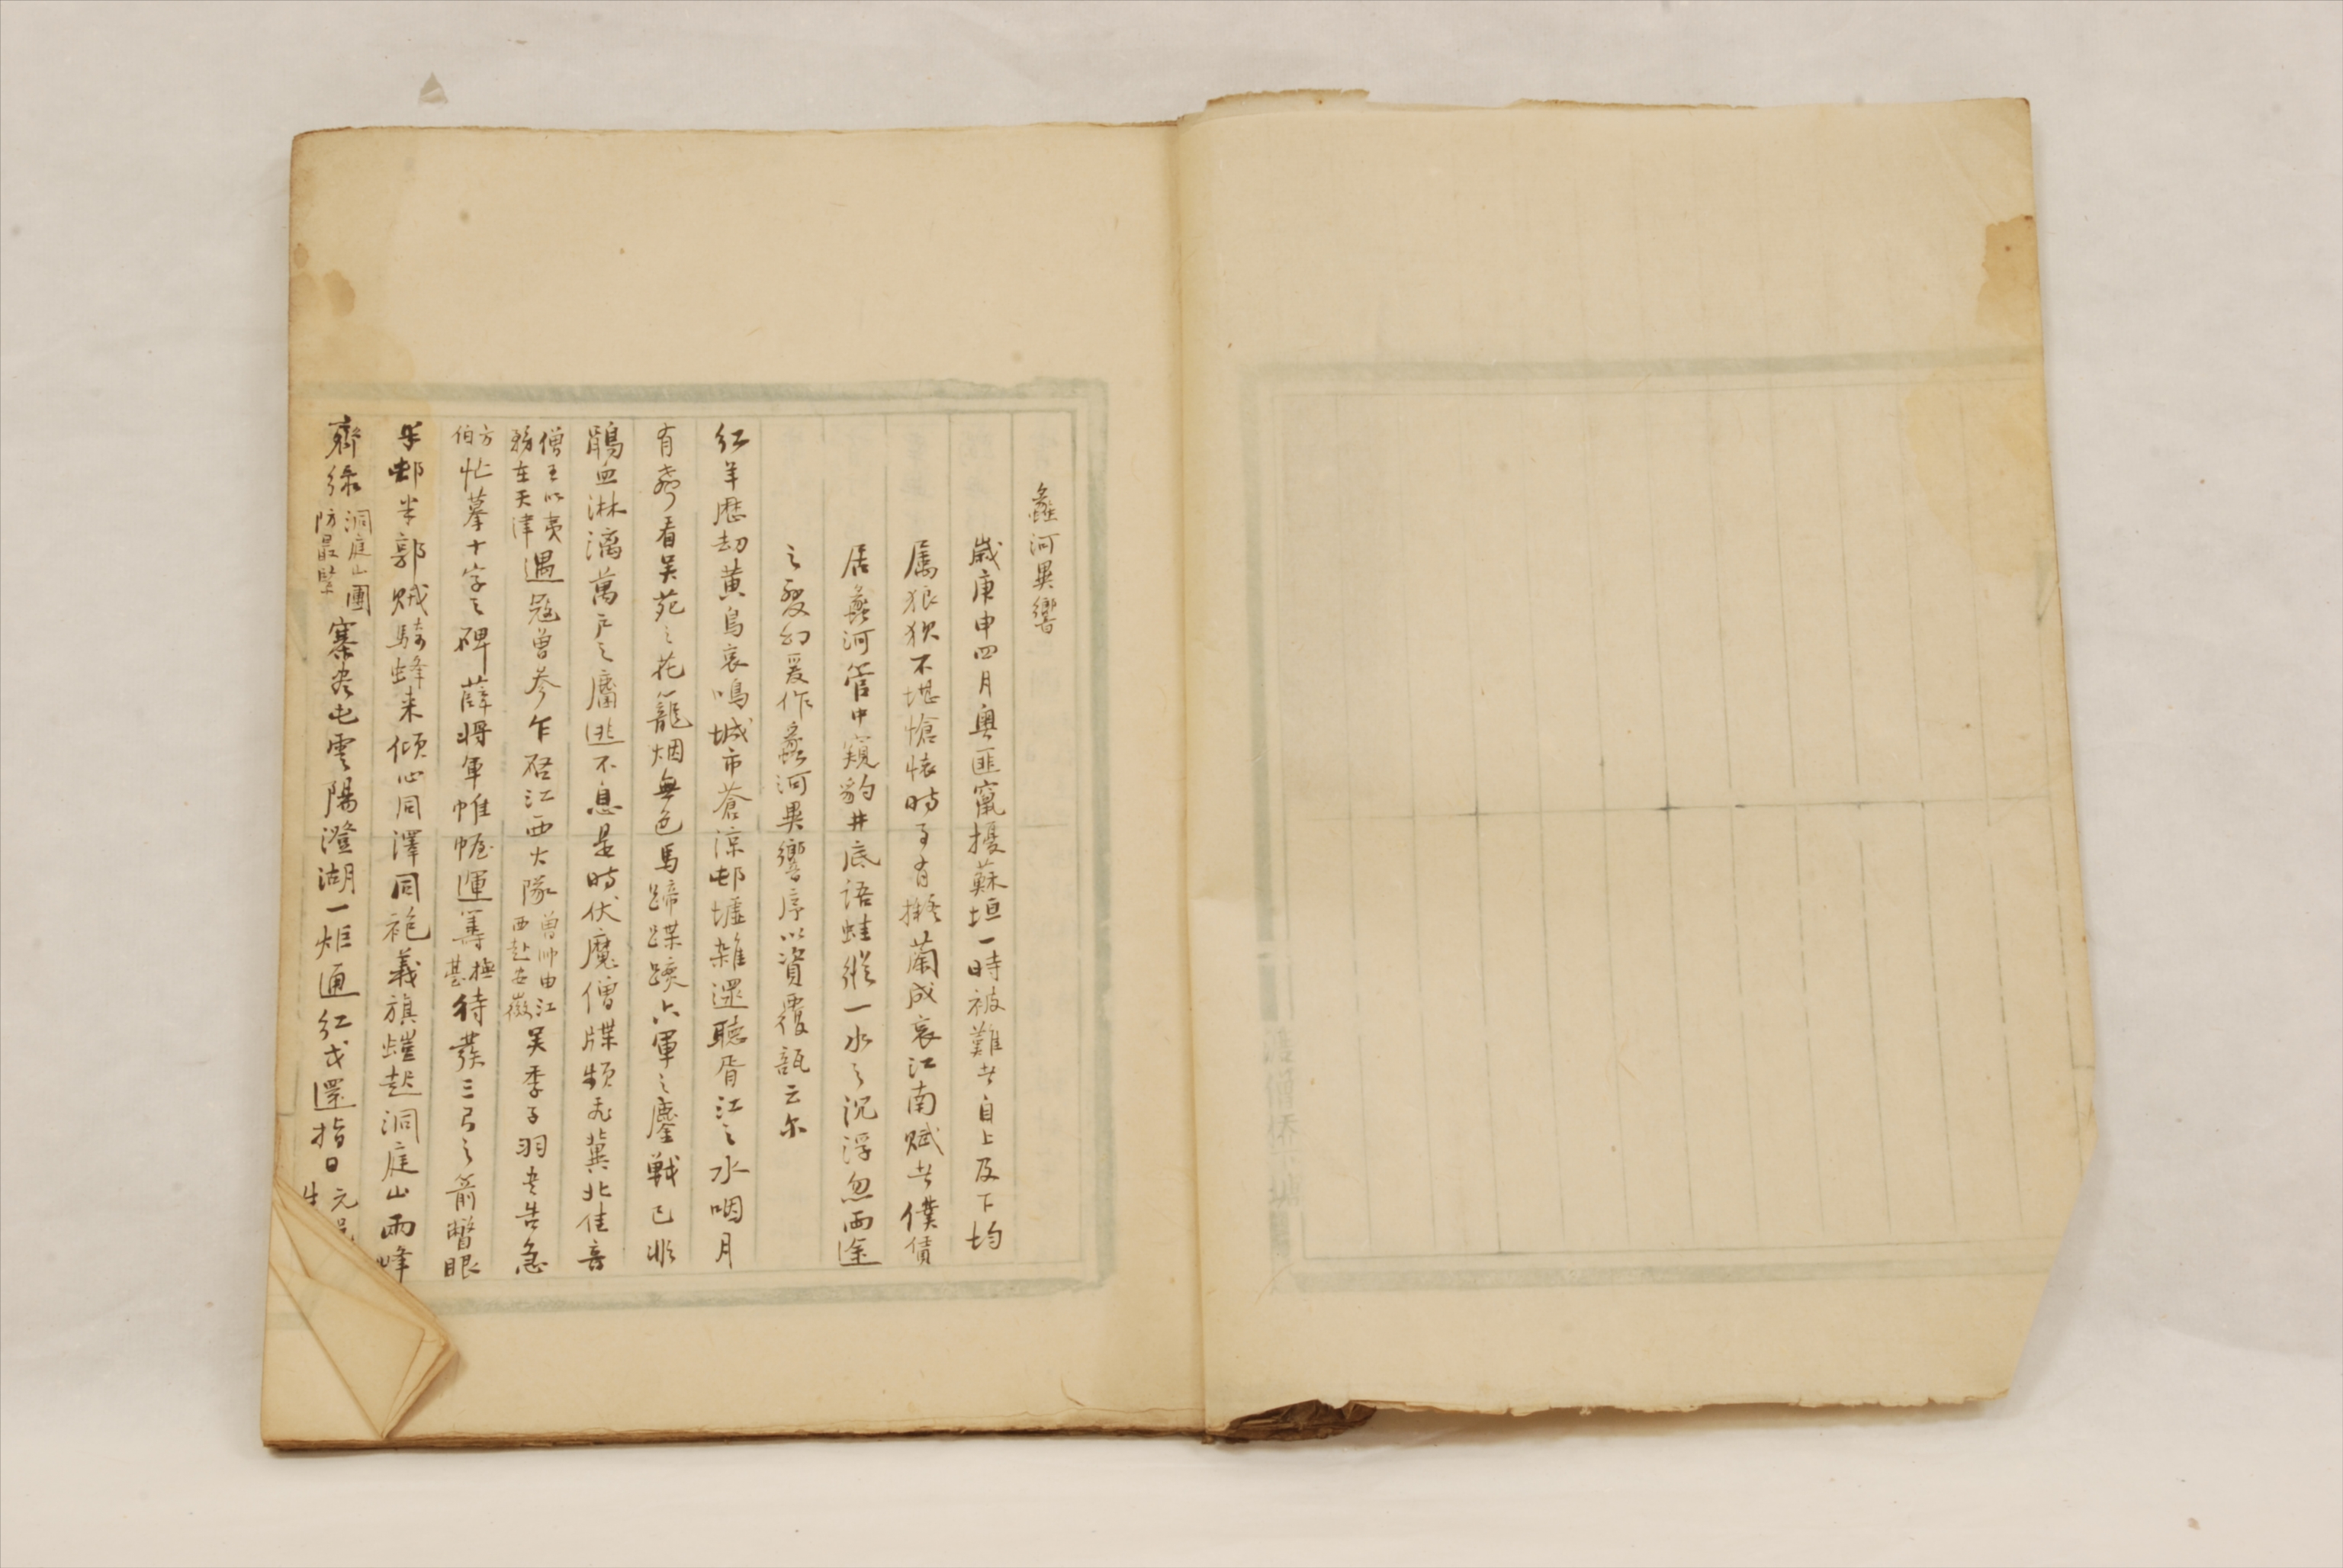 蠡河異響
歲庚申四月奧匪竄擾蘇垣一時被難者自上及下均
屬狼狽不堪愴懷時事有擬蘭成哀江南賦者僕僨
居蠡河管中窺豹井底語蛙縱一水之沉浮忽兩途
之變幻爰作蠡河異響序以資覆瓿云尔
紅羊歷劫黃鳥哀鳴城市蒼涼邨墟雜遝聽胥江之水咽月
有聲看吴苑之花籠烟無色馬蹄蹀躞六軍之鏖戰已非
鵑血淋漓萬户之屬逃不息是時伏魔僧牒頻飛冀北佳音
僧王以夷務在天津遇寇曾參乍啓江西大隊曾帅由江西赴安徽吴季子羽書告急
方伯忙摹十字之碑薛將軍帷幄運籌撫甚待發三弓之箭瞥眼
半邨半郭賊騎蜂来傾心同澤同袍義旗螘起洞庭山兩峰
齊緑洞庭山團防最堅寨尽屯雲陽澄湖一炬通紅戈還指日元